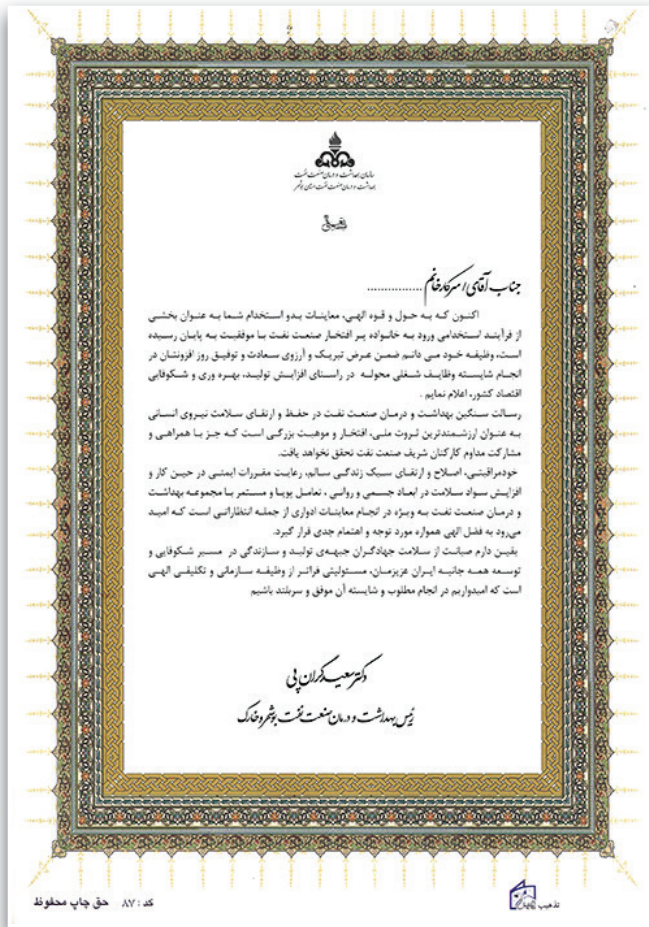 سازمان بهداشت و درمان صنعت نفت
بهداشت و درمان صنعت نفت استان بوشهر
جناب آقای / سرکار خانم ................
اکنون که به حول و قوه الهی، معاینات بدو استخدام شما به عنوان بخشی
از فرآیند استخدامی ورود به خانواده پر افتخار صنعت نفت با موفقیت به پایان رسیده
است، وظیفه خود می دانم ضمن عرض تبریک و آرزوی سعادت و توفیق روز افزونتان در
انجام شایسته وظایف شغلی محوله در راستای افزایش تولید، بهره وری و شکوفایی
اقتصاد کشور، اعلام نمایم .
رسالت سنگین بهداشت و درمان صنعت نفت در حفظ و ارتقای سلامت نیروی انسانی
به عنوان ارزشمندترین ثروت ملی، افتخار و موهبت بزرگی است که جز با همراهی و
مشارکت مداوم کارکنان شریف صنعت نفت تحقق نخواهد یافت.
خودمراقبتی، اصلاح و ارتقای سبک زندگی سالم، رعایت مقررات ایمنی در حین کار و
افزایش سواد سلامت در ابعاد جسمی و روانی ، تعامل پویا و مستمر با مجموعه بهداشت
و درمان صنعت نفت به ویژه در انجام معاینات ادواری از جمله انتظاراتی است که امید
می‌رود به فضل الهی همواره مورد توجه و اهتمام جدی قرار گیرد.
یقین دارم صیانت از سلامت جهادگران جبهه‌ی تولید و سازندگی در مسیر شکوفایی و
توسعه همه جانبه ایران عزیزمان، مسئولیتی فراتر از وظیفه سازمانی و تکلیفی الهی
است که امیدواریم در انجام مطلوب و شایسته آن موفق و سربلند باشیم
دکتر سعید گران پی
رئیس بهداشت و درمان صنعت نفت بوشهر و خارک
تذهیب
کد : ۸۷ حق چاپ محفوظ